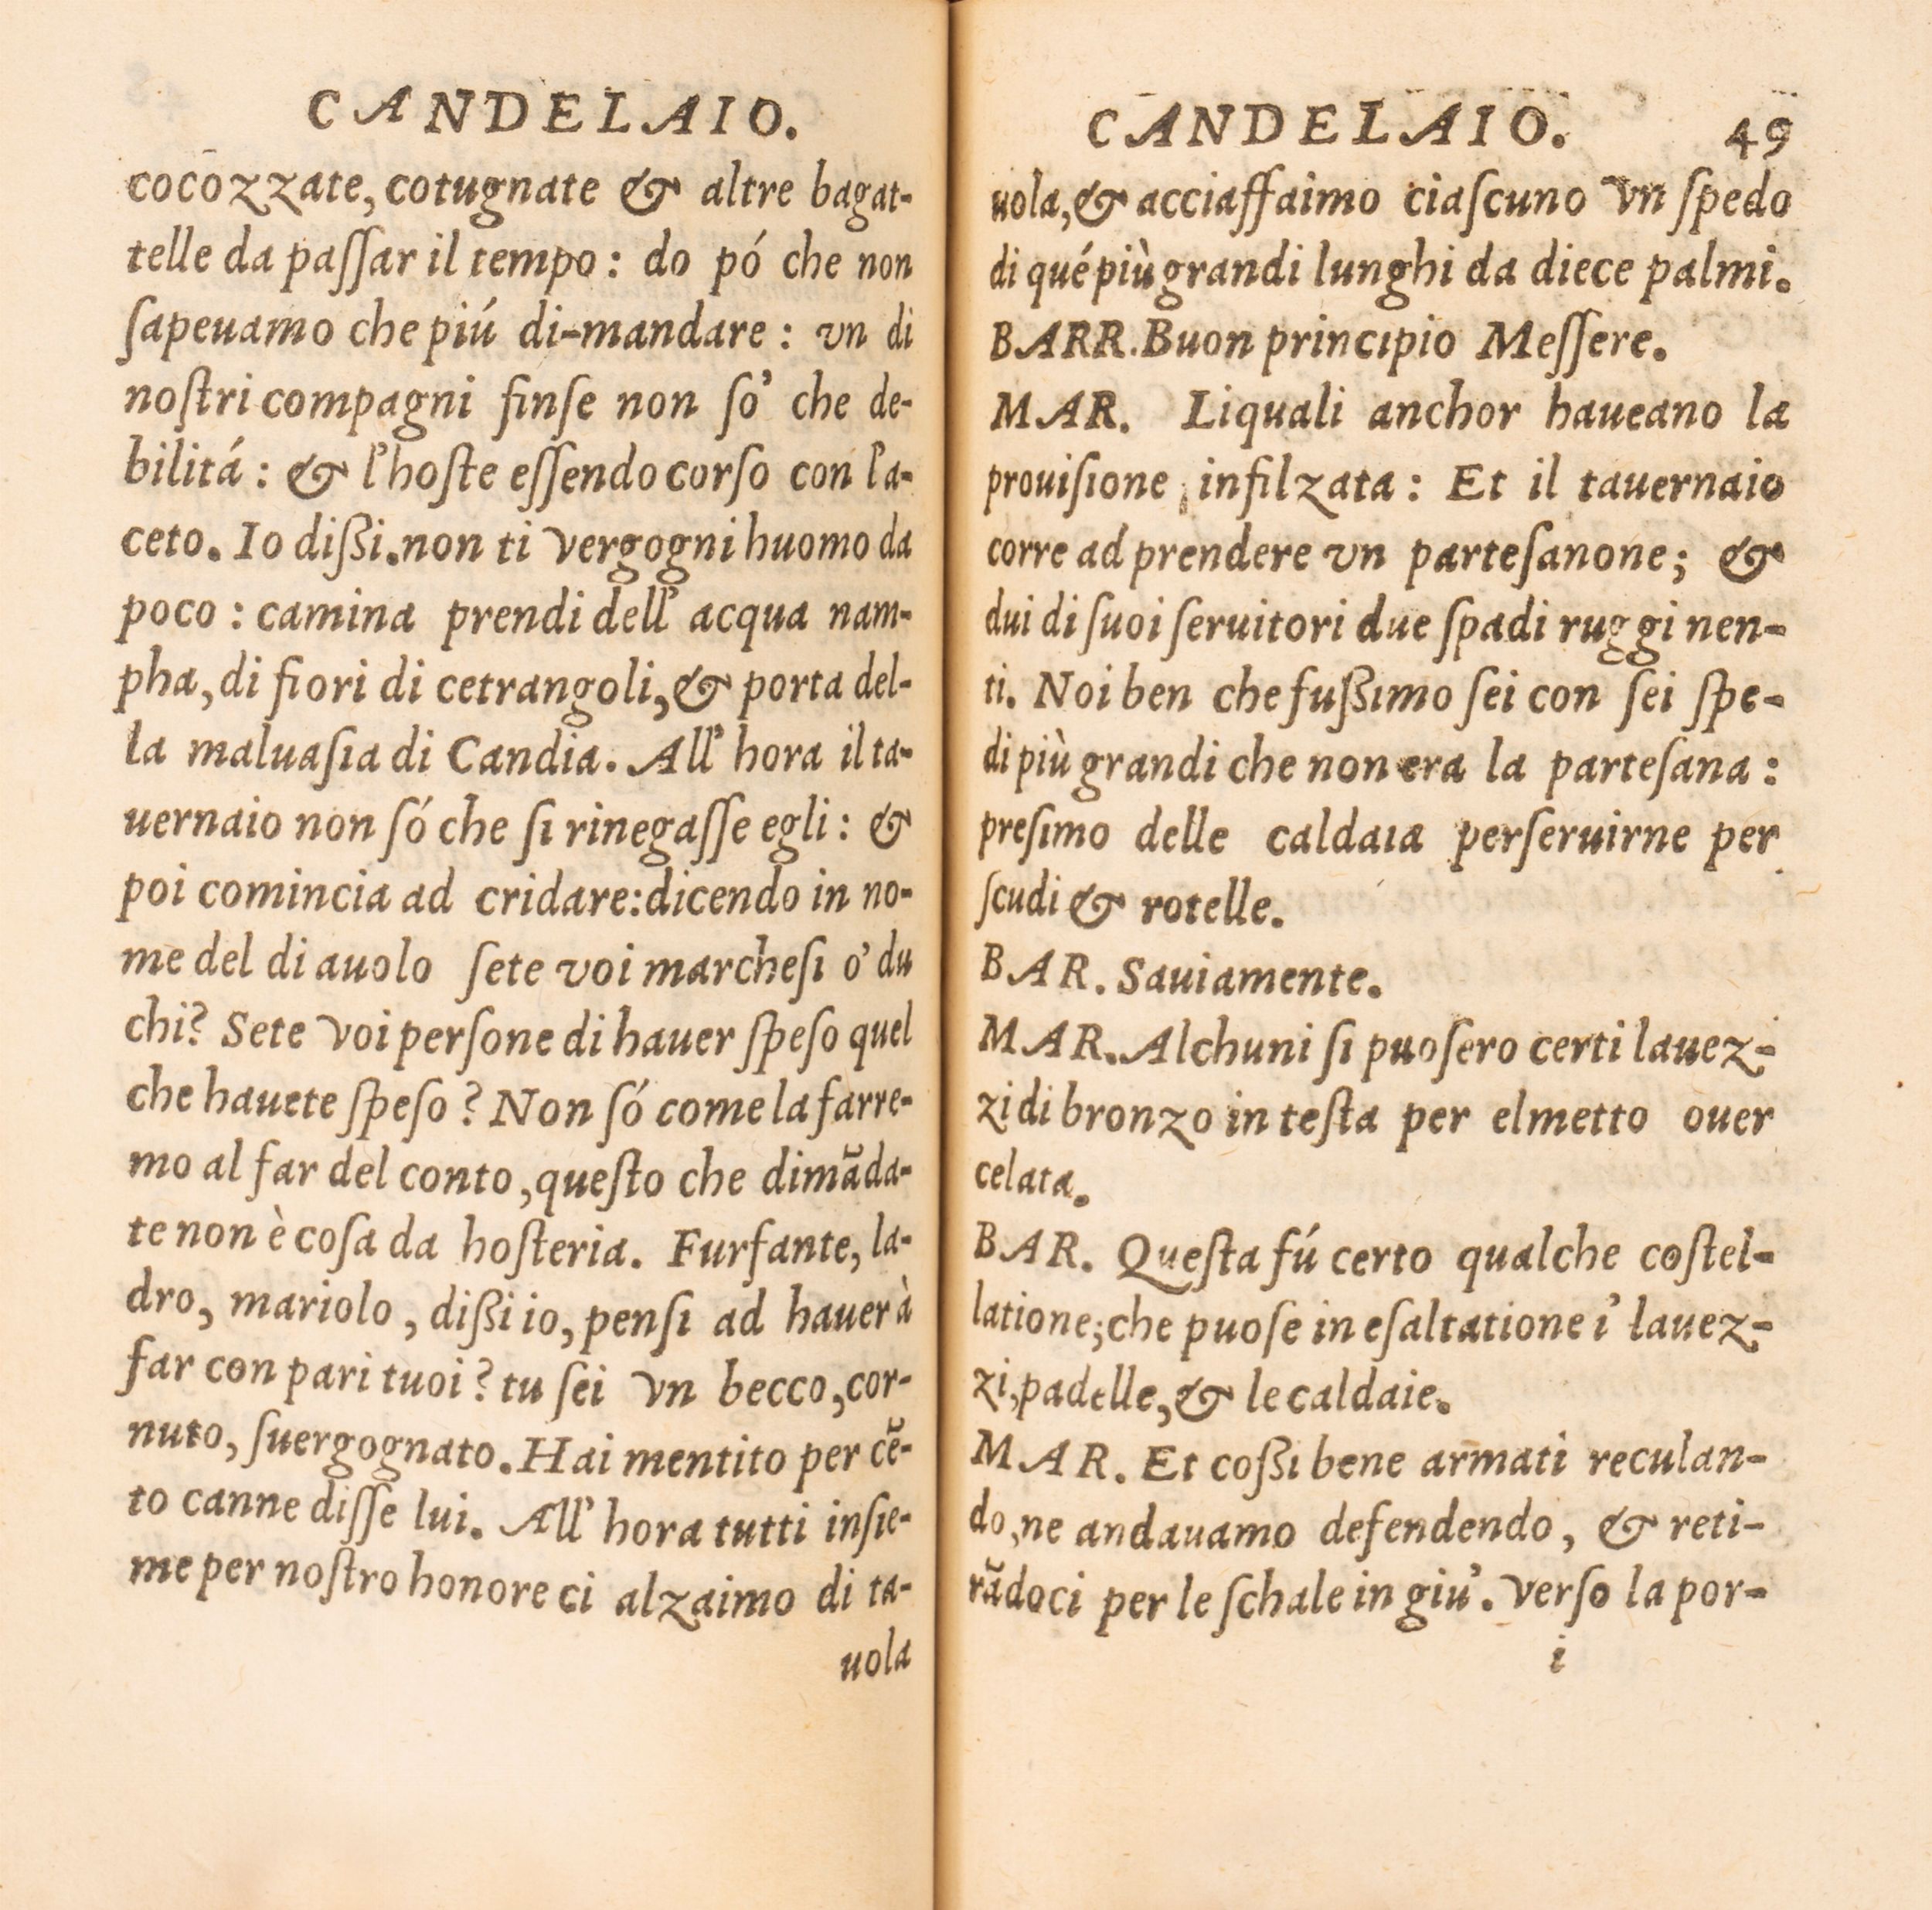 CANDELAIO.
cocozzate, cotugnate & altre bagat-
telle da paſſar il tempo : do pó che non
ſapeuamo che piú di-mandare : vn di
noſtri compagni finſe non ſo' che de-
bilitá : & l'hoſte eſſendo corſo con l'a-
ceto. Io dißi.non ti vergogni huomo da
poco : camina prendi dell' acqua nam-
pha, di fiori di cetrangoli, & porta del-
la maluaſia di Candia. All' hora il ta-
uernaio non ſó che ſi rinegaſſe egli : &
poi comincia ad cridare:dicendo in no-
me del di auolo ſete voi marcheſi o' du
chi? Sete voi perſone di hauer ſpeſo quel
che hauete ſpeſo ? Non ſó come la farre-
mo al far del conto, queſto che dimãda-
te non è coſa da hoſteria. Furfante, la-
dro, mariolo, dißi io, penſi ad hauer à
far con pari tuoi ? tu ſei vn becco, cor-
nuto, ſuergognato. Hai mentito per cẽ-
to canne diſſe lui. All' hora tutti inſie-
me per noſtro honore ci alzaimo di ta-
uola
CANDELAIO. 49
uola, & acciaffaimo ciaſcuno vn ſpedo
di qué più grandi lunghi da diece palmi.
BARR. Buon principio Meſſere.
MAR. Liquali anchor haueano la
prouiſione infilzata : Et il tauernaio
corre ad prendere vn parteſanone; &
dui di ſuoi ſeruitori due ſpadi ruggi nen-
ti. Noi ben che fußimo ſei con ſei ſpe-
di più grandi che non era la parteſana :
preſimo delle caldaia perſeruirne per
ſcudi & rotelle.
BAR. Sauiamente.
MAR. Alchuni ſi puoſero certi lauez-
zi di bronzo in teſta per elmetto ouer
celata.
BAR. Queſta fú certo qualche coſtel-
latione; che puoſe in eſaltatione i' lauez-
zi, padelle, & le caldaie.
MAR. Et coßi bene armati reculan-
do, ne andauamo defendendo, & reti-
rãdoci per le ſchale in giu'. verſo la por-
i